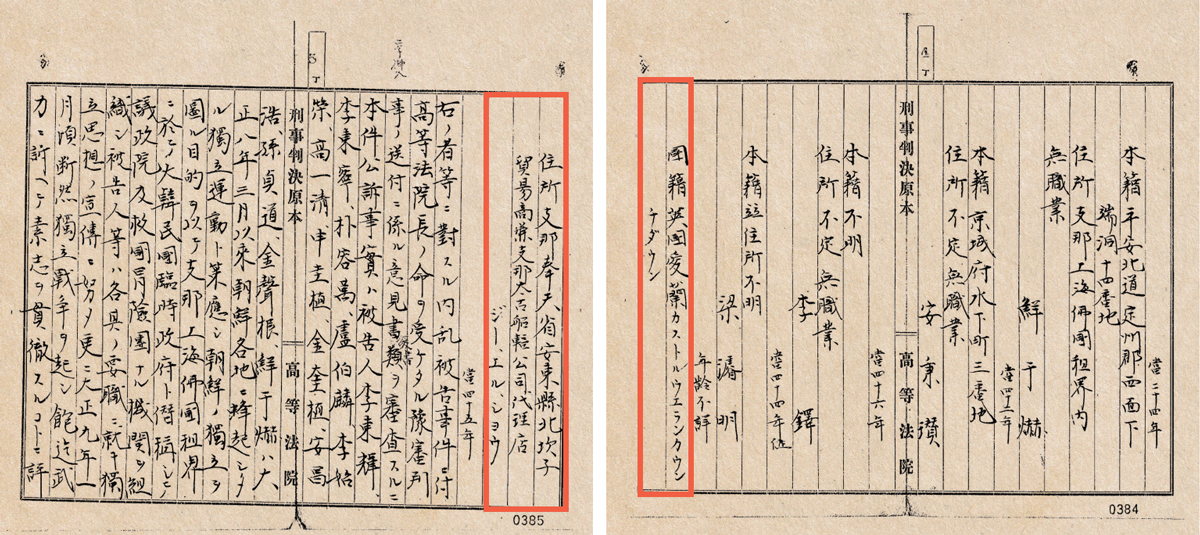 當二十四年
本籍平安北道定州郡西面下
端洞十四番地
住所支那上海佛國租界内
無職業
鮮于爀
本籍京城府水下町三番地
住所不定無職業
安秉瓚
刑事判決原本
高等法院
當四十六年
本籍不明
住所不定無職業
李鐸
當四十四年位
本籍並住所不明
梁濬明
年齢不詳
國籍英國愛蘭カストルウエランカウン
テダウン
0384
住所支那奉天省安東縣北坎子
貿易商兼支那太古船輪公司代理店
ジー、エル、シヨウ
當四十五年
右ノ者等ニ對スル内乱被告事件ニ付
高等法院長ノ命ヲ受ケタル豫審判
事ノ送付ニ係ル意見書類ヲ審査スルニ
本件公訴事實ハ被告人李東輝、
李東寧、朴容萬、盧伯麟、李始
榮、高一清、申圭植、金奎植、安昌
刑事判決原本
高等法院
浩、孫貞道、金聲根、鮮于爀ハ大
正八年三月以來朝鮮各地ニ蜂起シタ
ル獨立運動ト策應シ朝鮮ノ獨立ヲ
圖ル目的ヲ以テ支那上海佛國租界
ニ於テ大韓民國臨時政府ト僭稱シ
議政院及救國冒險團ナル機関ヲ組
織シ被告人等ハ各其ノ要職ニ就キ獨
立思想ノ宣傳ニ努メ更ニ大正九年一
月頃断然獨立戰争ヲ起シ飽迄武
力ニ訴ヘテ素志ヲ貫徹スルコトニ評
0385